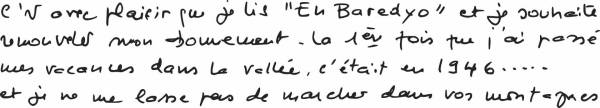 c'N avec plaisir que je lis "En Baredyo" et je souhaite
renouveler mon donnement. La 1ère fois que j'ai passé
mes vacances dans la vallée, c'était en 1946.....
et je ne me lasse pas de marcher dans vos montagnes